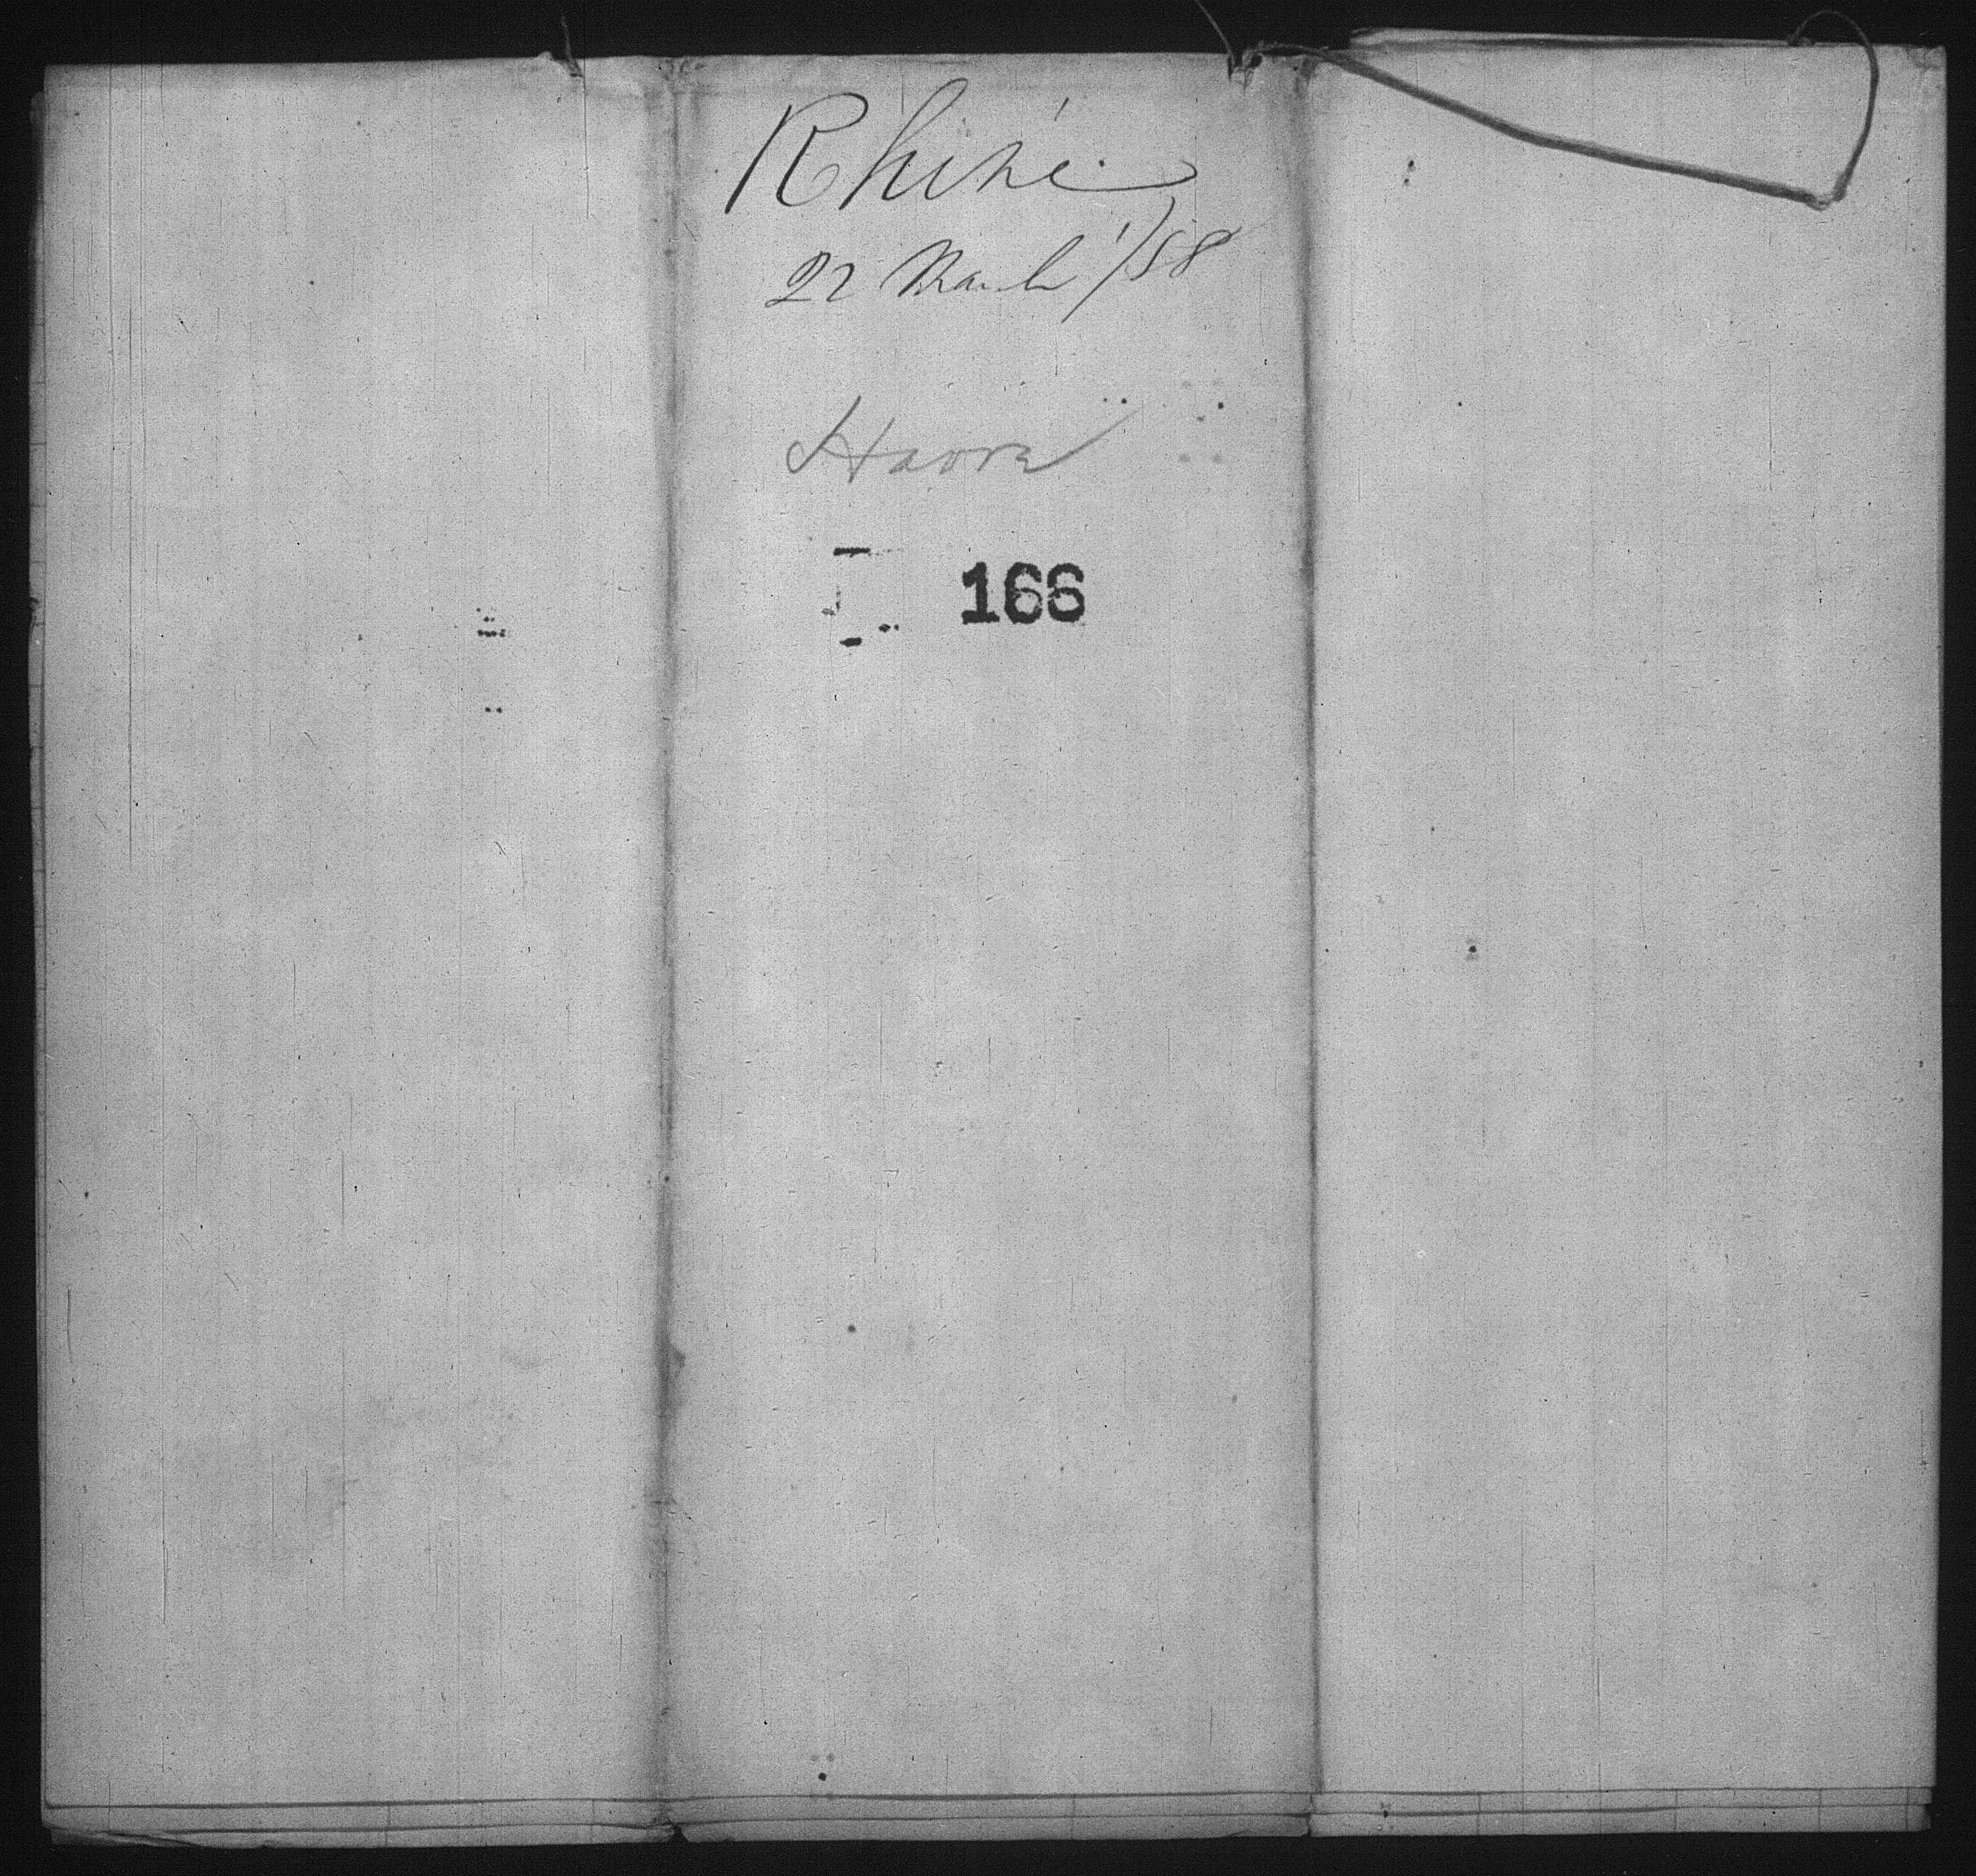 Rhine
22 March /58
Havre
166